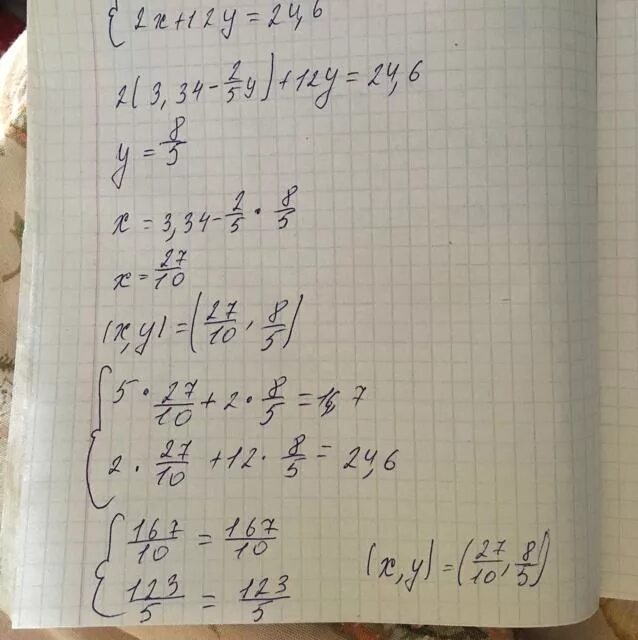 { 2x+12y=24,6
2(3,34-2/5y)+12y=24,6
y=8/5
x=3,34-2/5·8/5
x=27/10
(x,y)=(27/10,8/5)
{ 5·27/10+2·8/5=16,7
2·27/10+12·8/5=24,6
{ 167/10=167/10
123/5=123/5
(x,y)=(27/10,8/5)